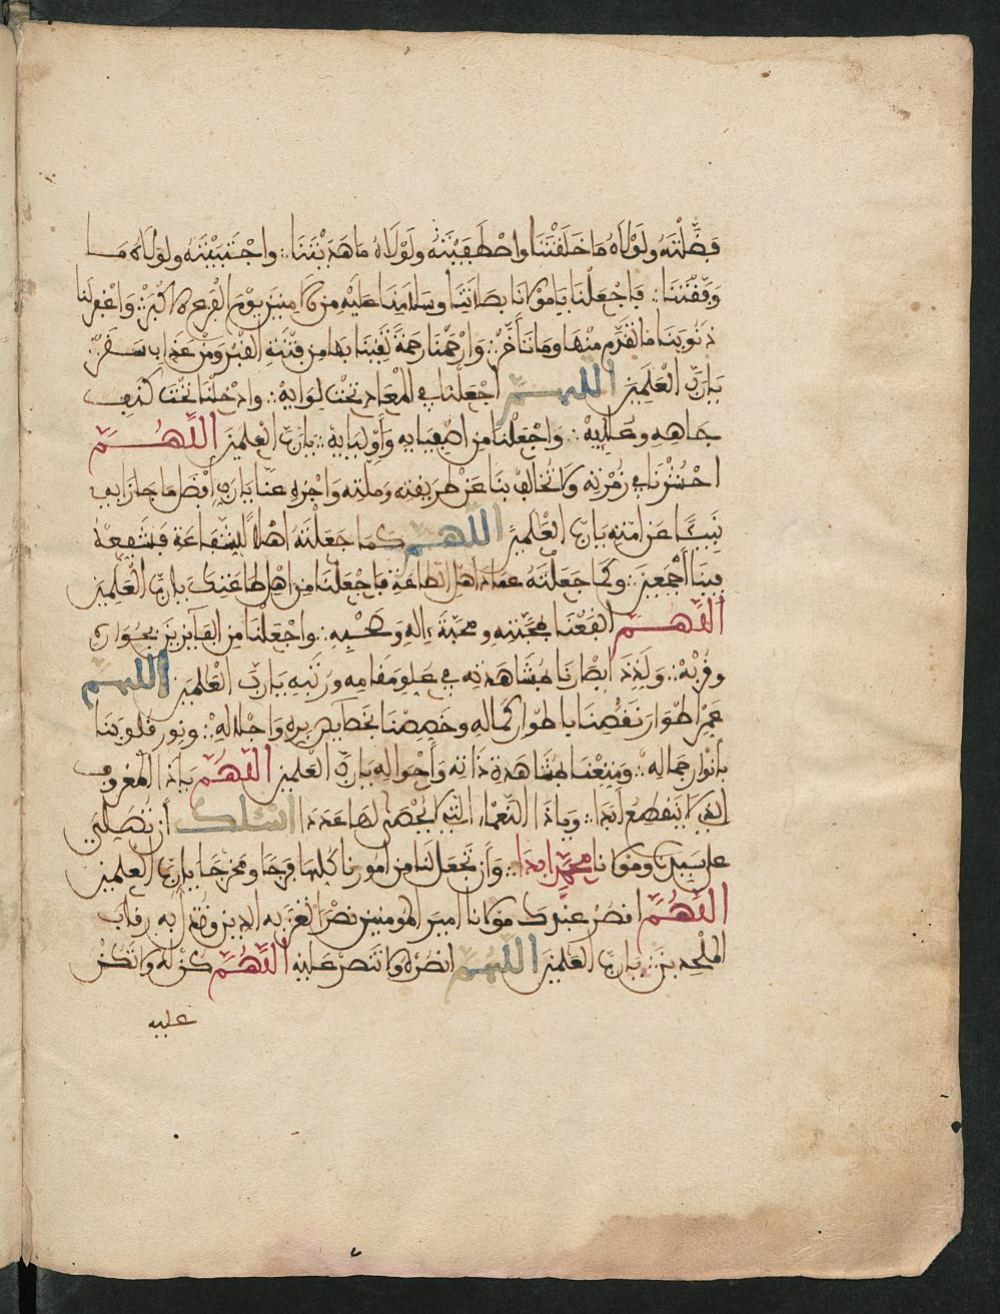 فضلته ولولاه ما خلقتنا واصطفيته ولولاه ما هديتنا واجتبيته ولولاه ما
وفقتنا فاجعلنا يا مولانا بصلاتنا وسلامنا عليه من الامنين يوم الفزع الاكبر واغفر لنا
ذنوبنا ما تقدم منها وما تأخر وارحمنا رحمة تقينا بها من فتنة القبر ومن عذاب سقر
يارب العلمين اللهم اجعلنا في المعاد تحت لوايه وادخلنا تحت كنف
جاهه وعلايه واجعلنا من اصفيايه واوليايه يارب العلمين اللهم
احشرنا في زمرته ولا تخالف بنا عن طريقته وملته واجزه عنا يارب افضل ما جازيت
نبيئا عن امته يارب العلمين اللهم كما جعلته اهلا للشفاعة فشفعه
فينا أجمعين وكما جعلته عماد اهل الطاعة فاجعلنا من اهل طاعتك يارب العلمين
اللهم انفعنا بمحبته ومحبة ءاله وصحبه واجعلنا من الفايزين بجواره
وقربه ولذذ ابصارنا بمشاهدته في علو مقامه ورتبه يارب العلمين اللهم
عمر اطوار نقصنا باطوار كماله وخصصنا بخصايص بره واجلاله ونور قلوبنا
بانوار جماله ومتعنا بمشاهدة ذاته وأحواله يارب العلمين اللهم ياذا المعروف
الذي لا ينقطع أبدا وياذا النعماء التي لا يحصى لها عددا أسئلك أن تصلي
على سيدنا ومولانا محمد ابدا وأن تجعل لنا من امورنا كلها فرجا ومخرجا يارب العلمين
اللهم انصر عبدك مولانا امير المومنين نصرا تعز به الدين وتذل به رقاب
الملحدين يارب العلمين اللهم انصره ولا تنصر عليه اللهم كن له ولا تكن
عليه